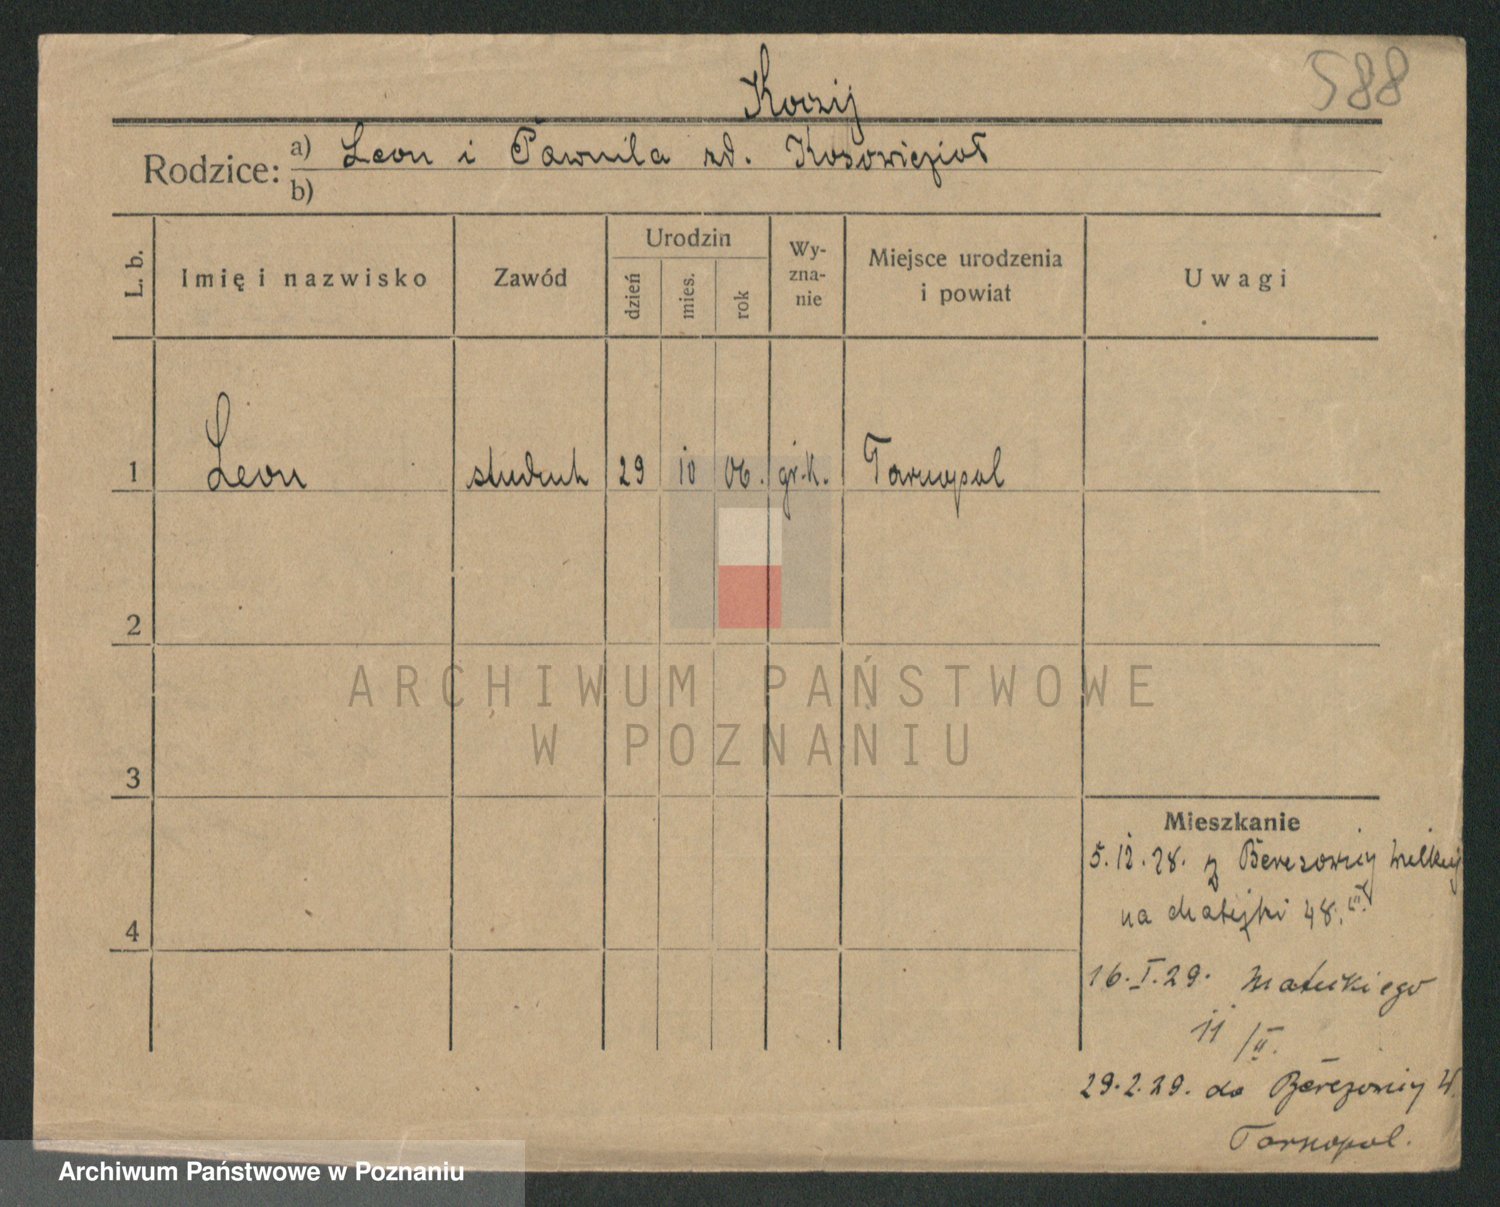 588
Koczij
Rodzice: a) Leon i Pawnila zd.
b)
L. b. Imię i nazwisko Zawód Urodzin dzień mies. rok Wy-zna-nie Miejsce urodzenia i powiat Uwagi
1 Leon student 29 10 06. gr.-k. Tarnopol
2
3
4
Mieszkanie
5. 12. 28. z Berezowicy Wielkiej
na Matejki 48. III
16. I. 29.
11 / II.
29. 2. 29. do Berezowicy W.
Tarnopol.
ARCHIWUM PAŃSTWOWE
W POZNANIU
Archiwum Państwowe w Poznaniu